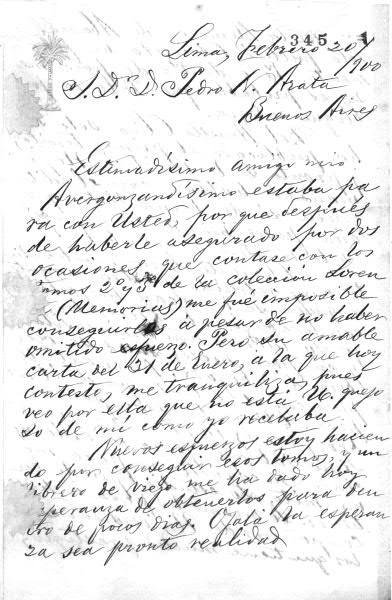 345 1
Lima, Febrero 20/900
S. Dr. D. Pedro N. Arata
Buenos Aires
Estimadísimo amigo mio.
Avergonzandísimo estaba pa
ra con Usted, por que después
de haberle asegurado por dos
ocasiones que contase con los
tomos 2º y 3º de la coleción Loren
(Memorias) me fué imposible
conseguirlos a pesar de no haber
omitido esfuerzo. Pero su amable
carta del 21 de Enero, a la que hoy
contesto, me tranquiliza, pues
veo por ella que no está U. quejo
so de mi como yo recelaba.
Nuevos esfuerzos estoy hacien
do por conseguir esos tomos, y un
librero de viejo me ha dado hoy
esperanza de obtenerlos para den
tro de pocos dias. Ojalá la esperan
za sea pronto realidad